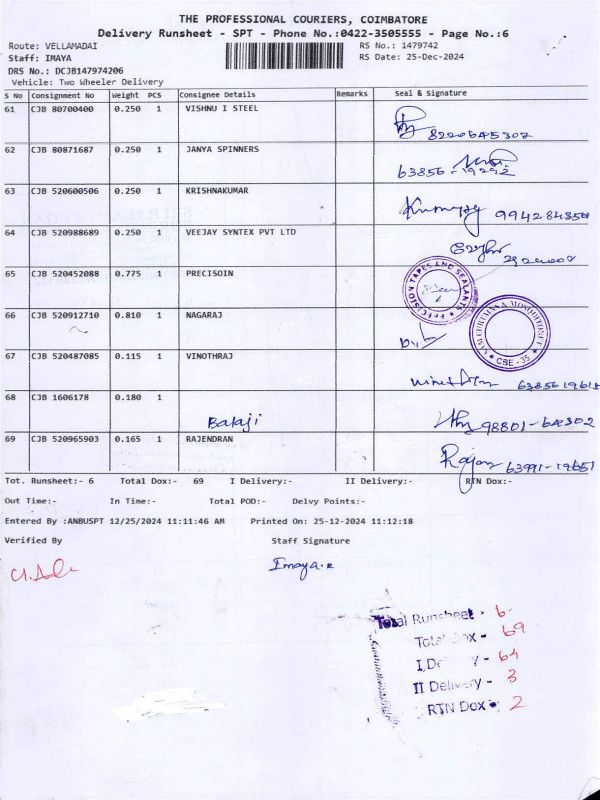 THE PROFESSIONAL COURIERS, COIMBATORE
Delivery Runsheet - SPT - Phone No.:0422-3505555 - Page No.:6
Route: VELLAMADAI RS No.: 1479742
Staff: IMAYA RS Date: 25-Dec-2024
DRS No.: DCJB147974206
Vehicle: Two Wheeler Delivery
S No Consignment No Weight PCS Consignee Details Remarks Seal & Signature
61 CJB 80700400 0.250 1 VISHNU I STEEL
8220645302
62 CJB 80871687 0.250 1 JANYA SPINNERS
63856-19292
63 CJB 520600506 0.250 1 KRISHNAKUMAR
994284350
64 CJB 520988689 0.250 1 VEEJAY SYNTEX PVT LTD
65 CJB 520452088 0.775 1 PRECISOIN
PRECISION TAPES AND SEALANTS
66 CJB 520912710 0.810 1 NAGARAJ
CBE - 35
67 CJB 520487085 0.115 1 VINOTHRAJ
68 CJB 1606178 0.180 1
Balaji 98801-64302
69 CJB 520965903 0.165 1 RAJENDRAN
Rajan 63991-19651
Tot. Runsheet:- 6 Total Dox:- 69 I Delivery:- II Delivery:- RTN Dox:-
Out Time:- In Time:- Total POD:- Delvy Points:-
Entered By :ANBUSPT 12/25/2024 11:11:46 AM Printed On: 25-12-2024 11:12:18
Verified By Staff Signature
Imaya.e
Total Runsheet - 6
Total Dox - 69
I Delivery - 64
II Delivery - 3
RTN Dox - 2